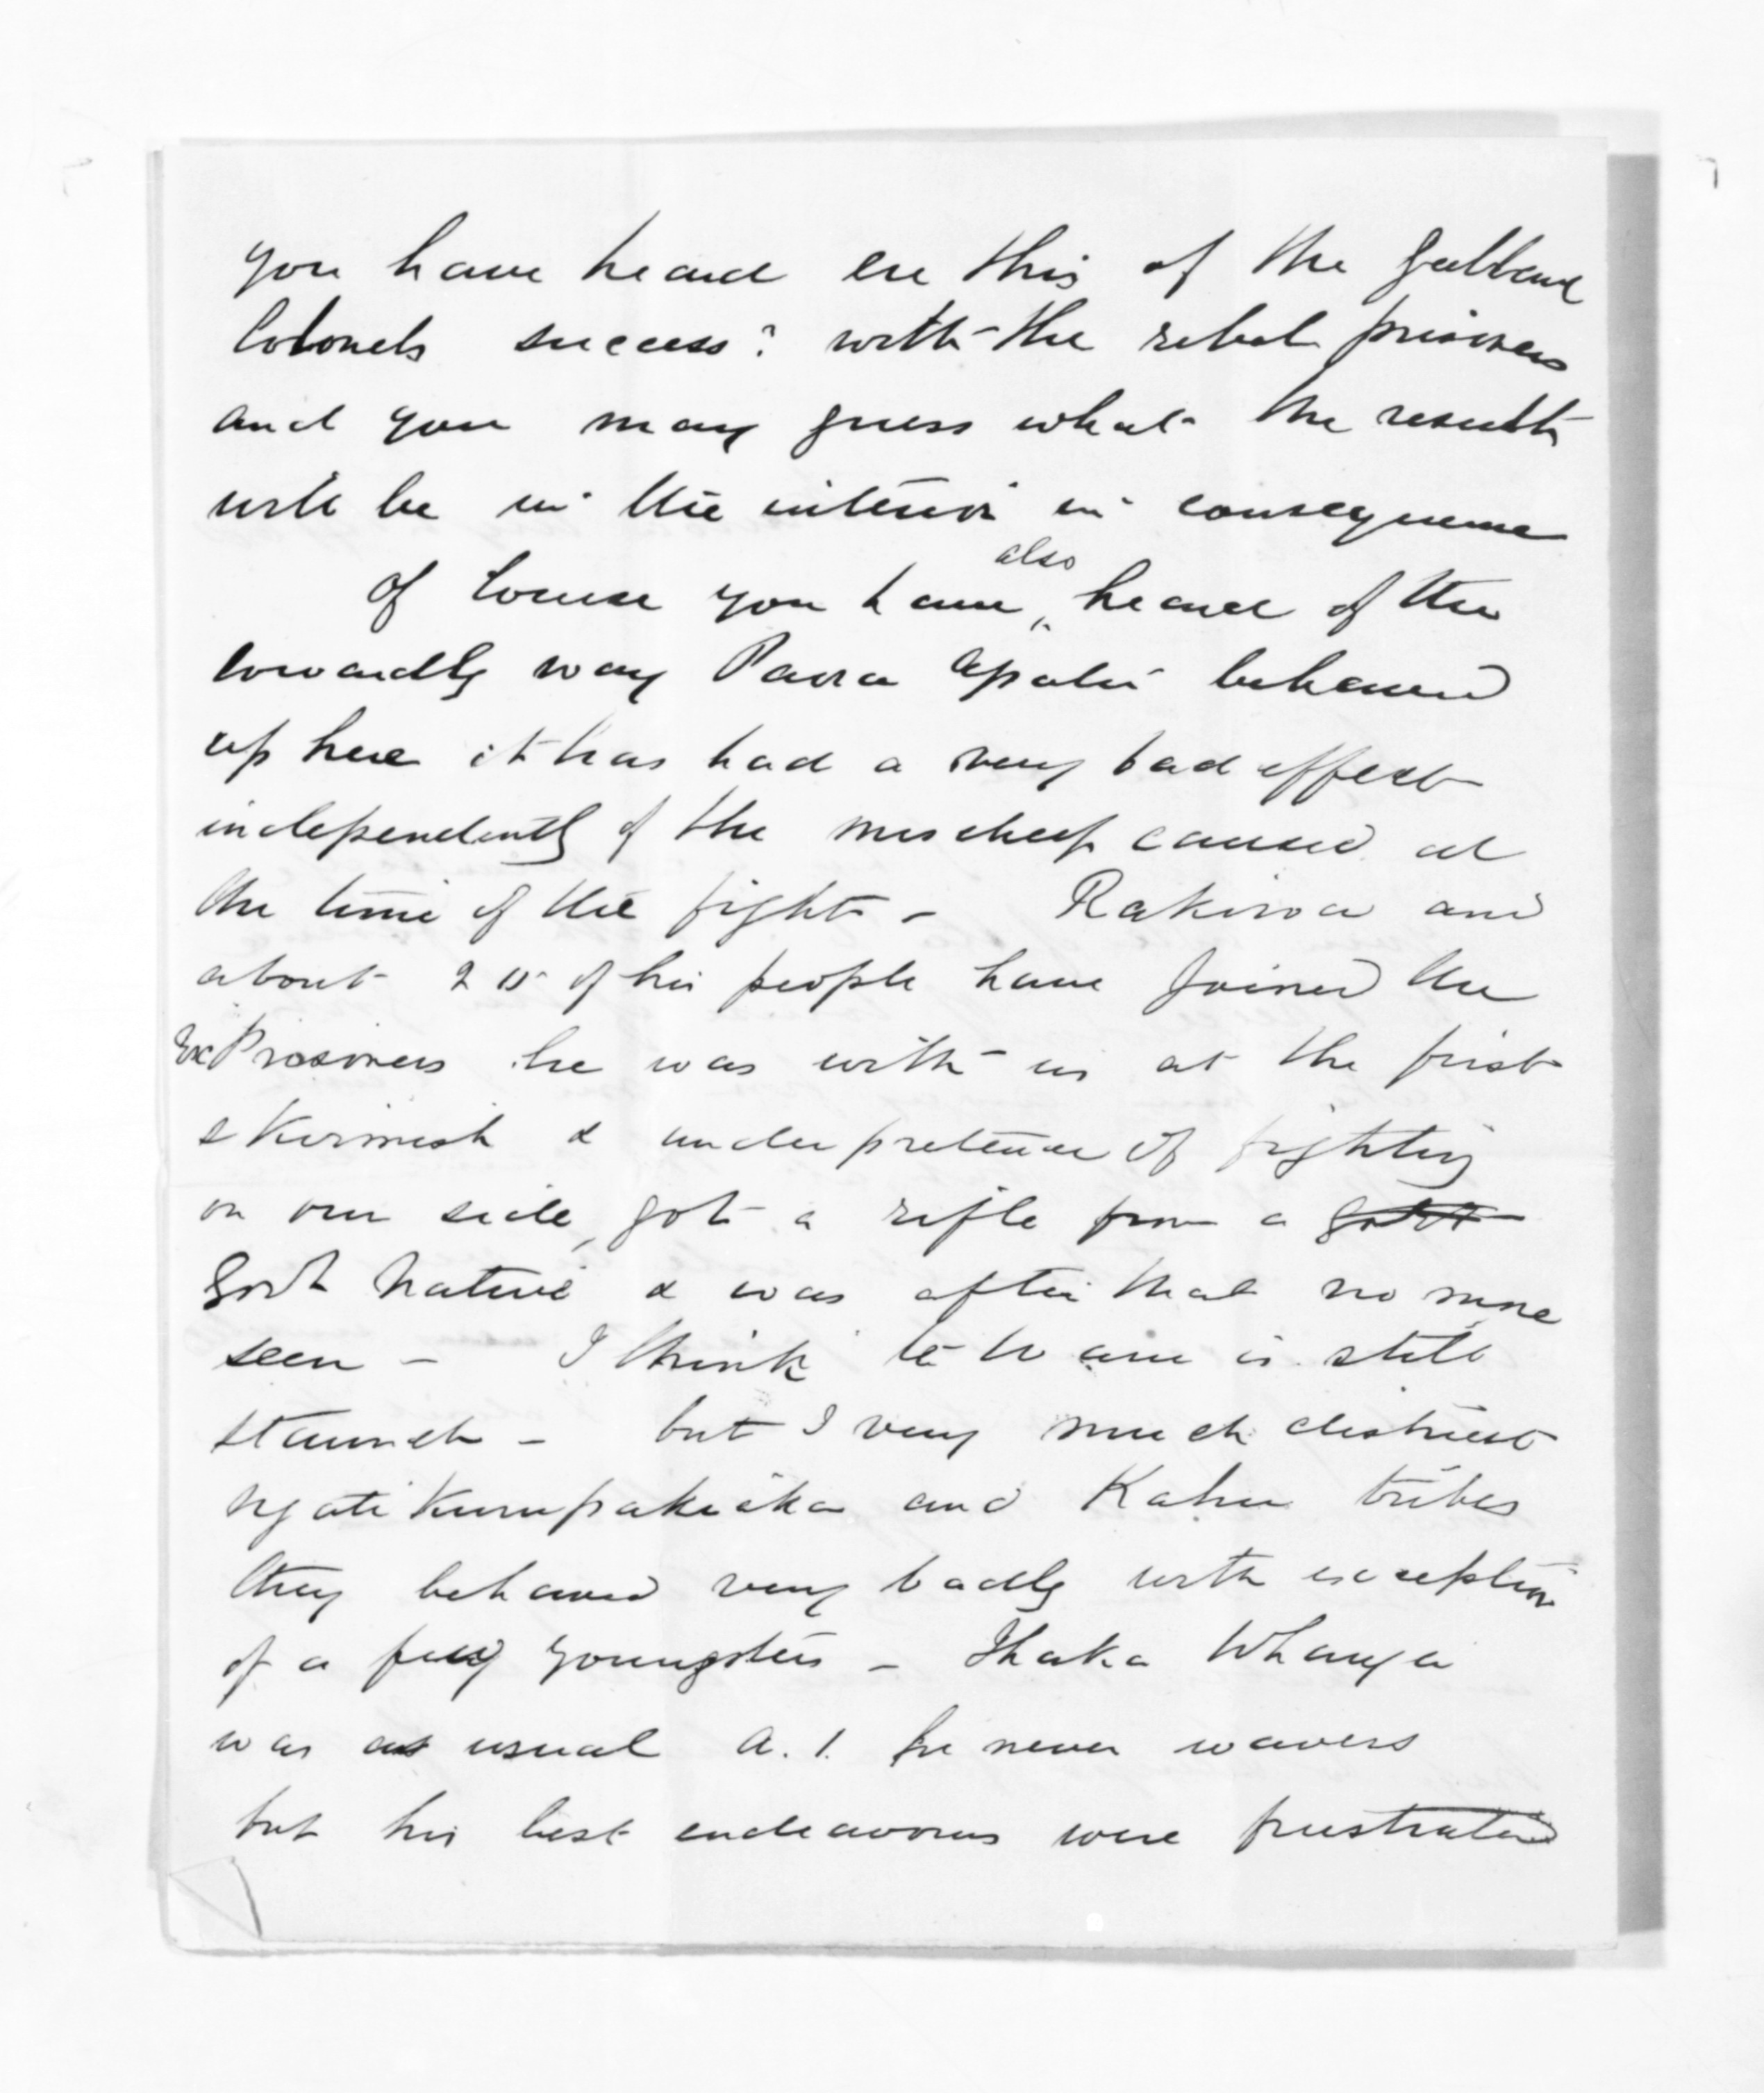 you have heard ere this of the gallant
Colonels success? with the rebel prisoners
and you may guess what the result
will be in the interior in consequence
Of Course you have also heard of the
cowardly way Paora Apatu behaved
up here it has had a very bad effect
independently of the mischeif caused at
the time of the fight - Rakiroa and
about of his people have joined the
ExPrisoners he was with us at the first
skirmish & under pretence of fighting
on our side, got a rifle from a
Govt Native & was after that no more
seen - I think te is still
staunch - but I very much distrust
Ngati Kurupakiaka and Kahu tribes
they behaved very badly with exception
of a few youngsters - Ihaka Whanga
was as usual A.1. he never wavers
but his best endeavours were frustrated